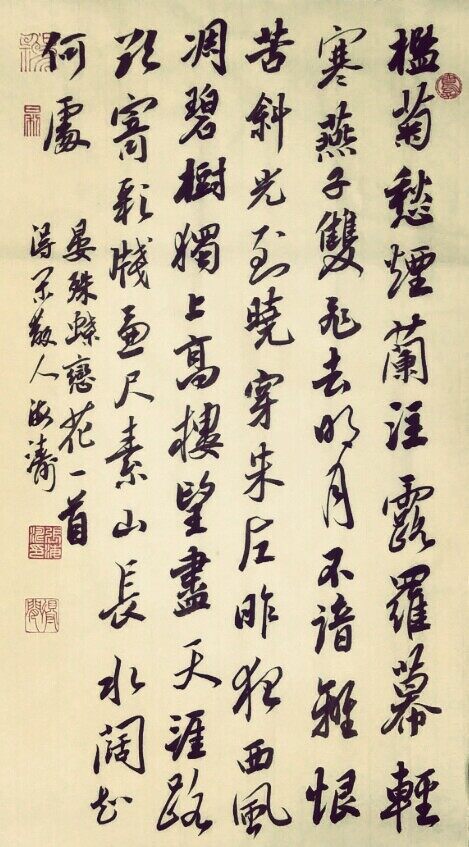 檻菊愁煙蘭泣露羅幕輕
寒燕子雙飛去明月不諳離恨
苦斜光到曉穿朱户昨夜西風
凋碧樹獨上高樓望盡天涯路
欲寄彩牋兼尺素山長水闊知
何處
晏殊蝶戀花一首
散人海濤